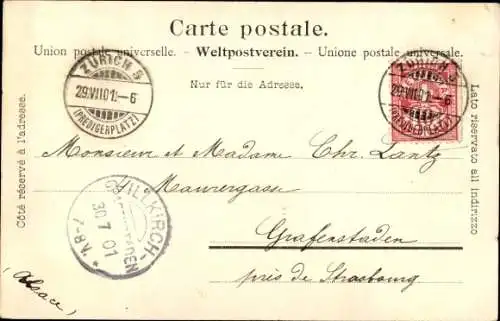 Carte postale.
Union postale universelle. - Weltpostverein. - Unione postale universale.
ZÜRICH 5
29.VII.01.-6
(PREDIGERPLATZ)
ZÜRICH 5
29.VII.01.-6
(PREDIGERPLATZ)
Nur für die Adresse.
Côté réservé à l'adresse.
Lato riservato all indirizzo
Monsieur et Madame Chr. Lantz
Maurergasse
ILLKIRCH-
GRAFENSTADEN
30.7.01
7-8N.
Grafenstaden
près de Strasbourg
(Alsace)